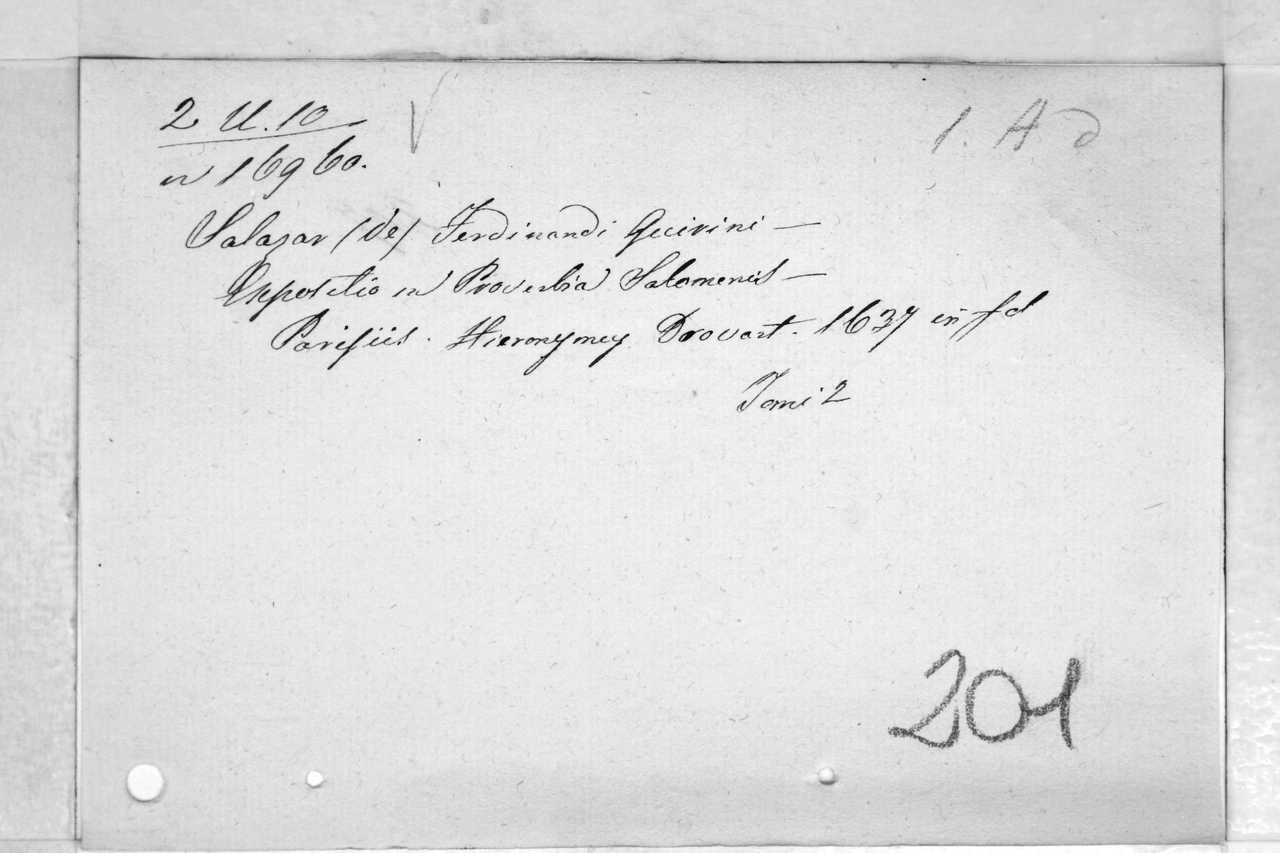 2 U. 10
1. A d
in 16960.
Salazar (de) Ferdinandi Quirini —
Expositio in Proverbia Salomonis —
Parisiis. Hieronymey Drovart. 1637 in fol
Tomi 2
201